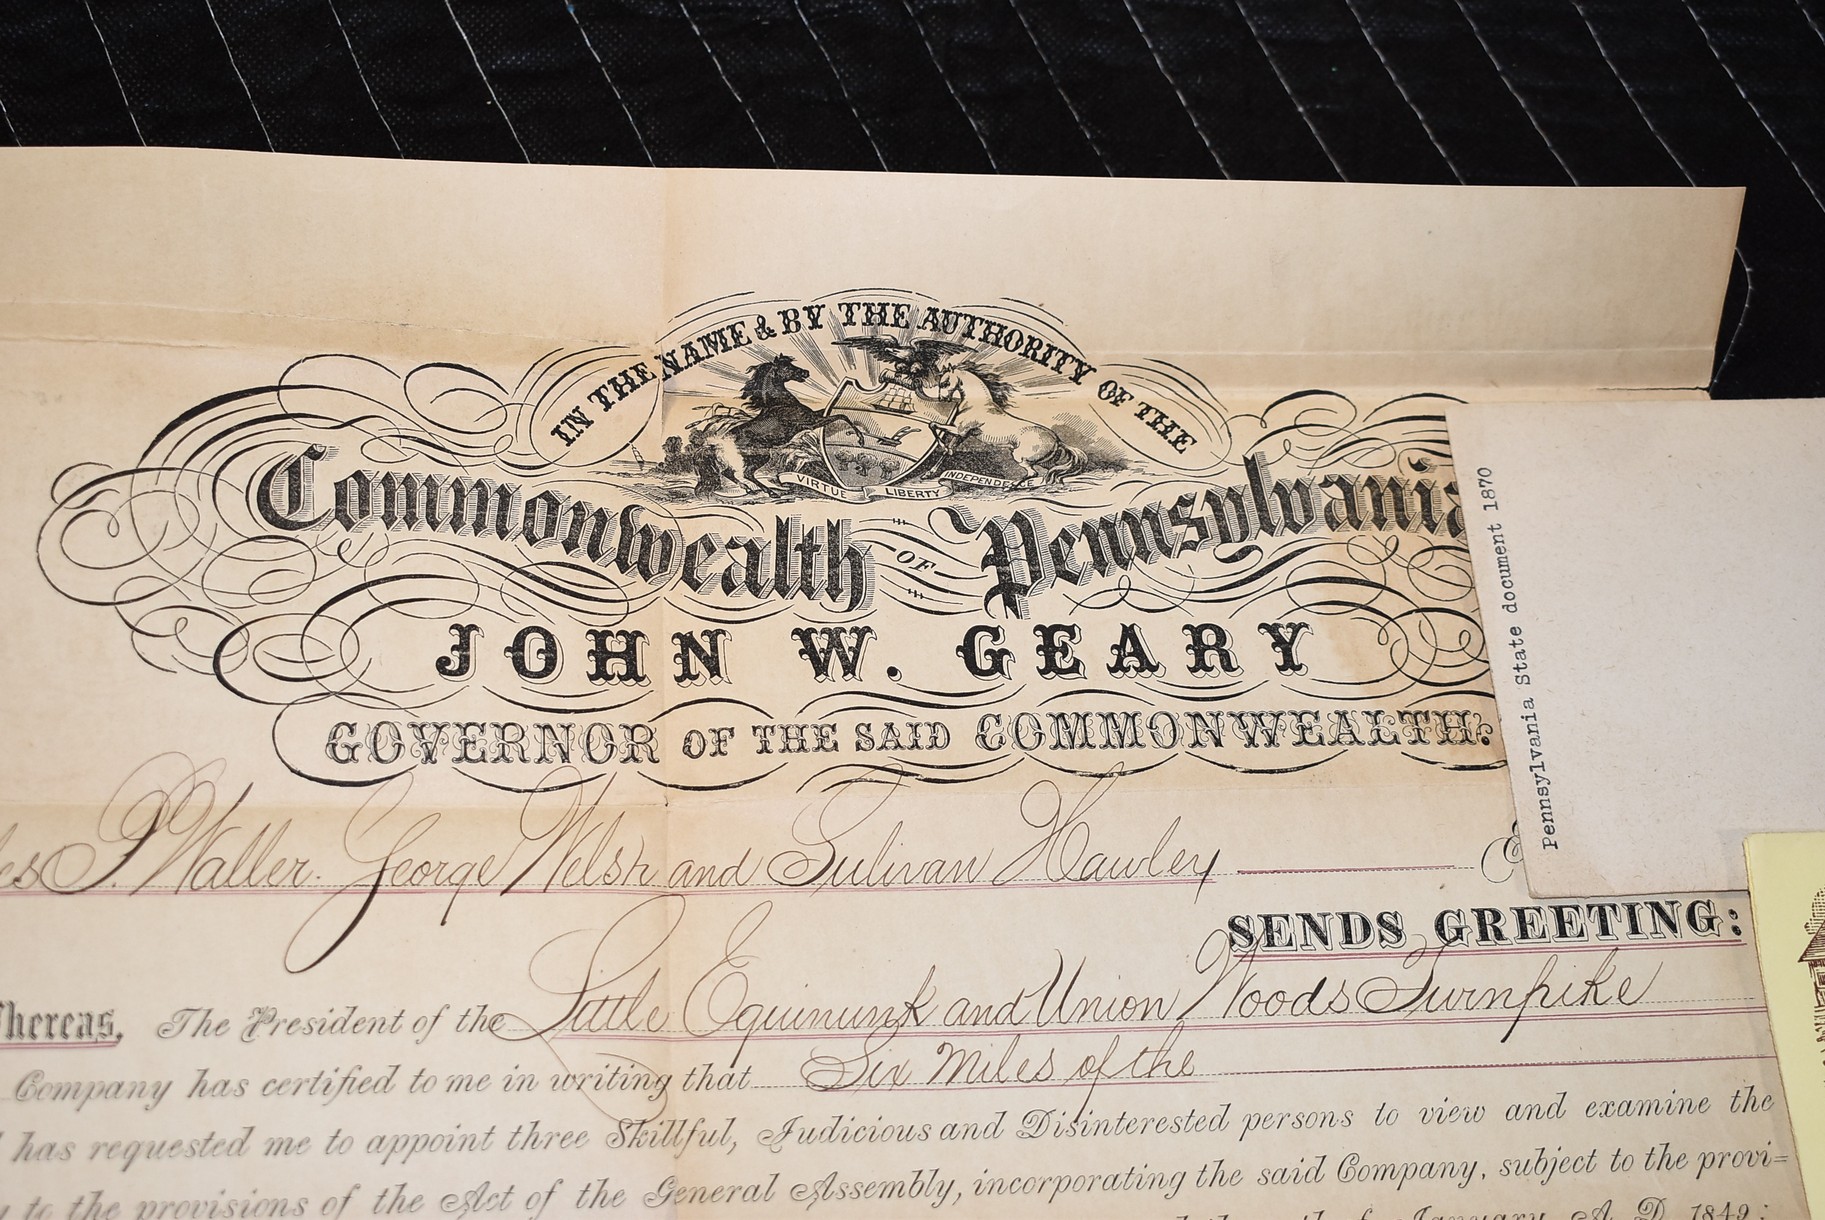 IN THE NAME & BY THE AUTHORITY OF THE
VIRTUE LIBERTY INDEPENDENCE
Commonwealth OF Pennsylvania
JOHN W. GEARY
GOVERNOR OF THE SAID COMMONWEALTH.
es P. Waller. George Welsh and Sulivan Hawley
SENDS GREETING:
Whereas, The President of the Little Equinunk and Union Woods Turnpike
Company has certified to me in writing that Six Miles of the
has requested me to appoint three Skillful, Judicious and Disinterested persons to view and examine the
to the provisions of the Act of the General Assembly, incorporating the said Company, subject to the provi=
January, A. D. 1849:
Pennsylvania State document 1870